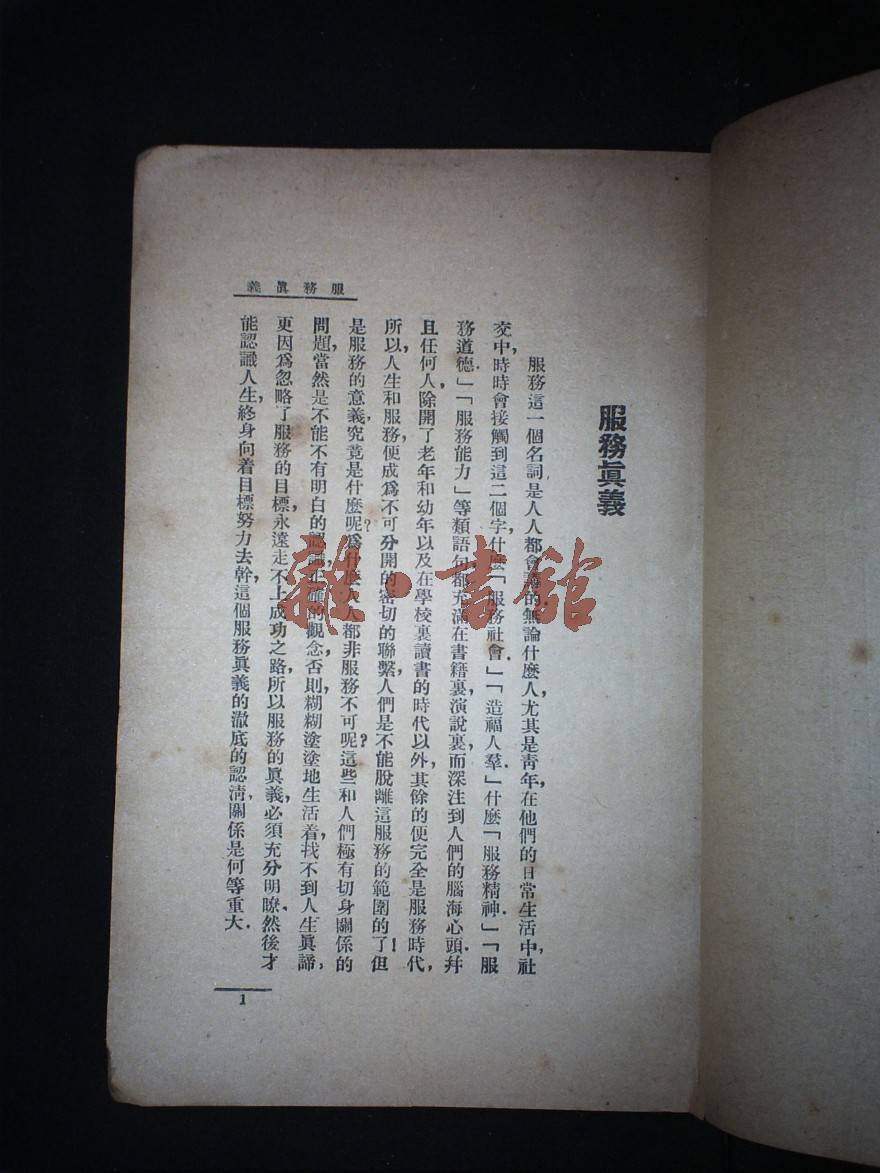 服務眞義
服務這一個名詞,是人人都會講的無論什麼人,尤其是靑年,在他們的日常生活中,社
交中,時時會接觸到這二個字,什麼「服務社會.」「造福人羣.」什麼「服務精神.」「服
務道德.」「服務能力」等類語句都充滿在書籍裏,演說裏,而深注到人們的腦海心頭.幷
且任何人,除開了老年和幼年以及在學校裏讀書的時代以外,其餘的便完全是服務時代,
所以,人生和服務,便成爲不可分開的密切的聯繫,人們是不能脫離這服務的範圍的了!但
是服務的意義,究竟是什麼呢?爲什麼人人都非服務不可呢?這些和人們極有切身關係的
問題,當然是不能不有明白的認識,正確的觀念,否則,糊糊塗塗地生活着,找不到人生眞諦,
更因爲忽略了服務的目標,永遠走不上成功之路.所以服務的眞義,必須充分明瞭.然後才
能認識人生,終身向着目標努力去幹,這個服務眞義的澈底的認淸,關係是何等重大.
服務眞義
1
雜·書館